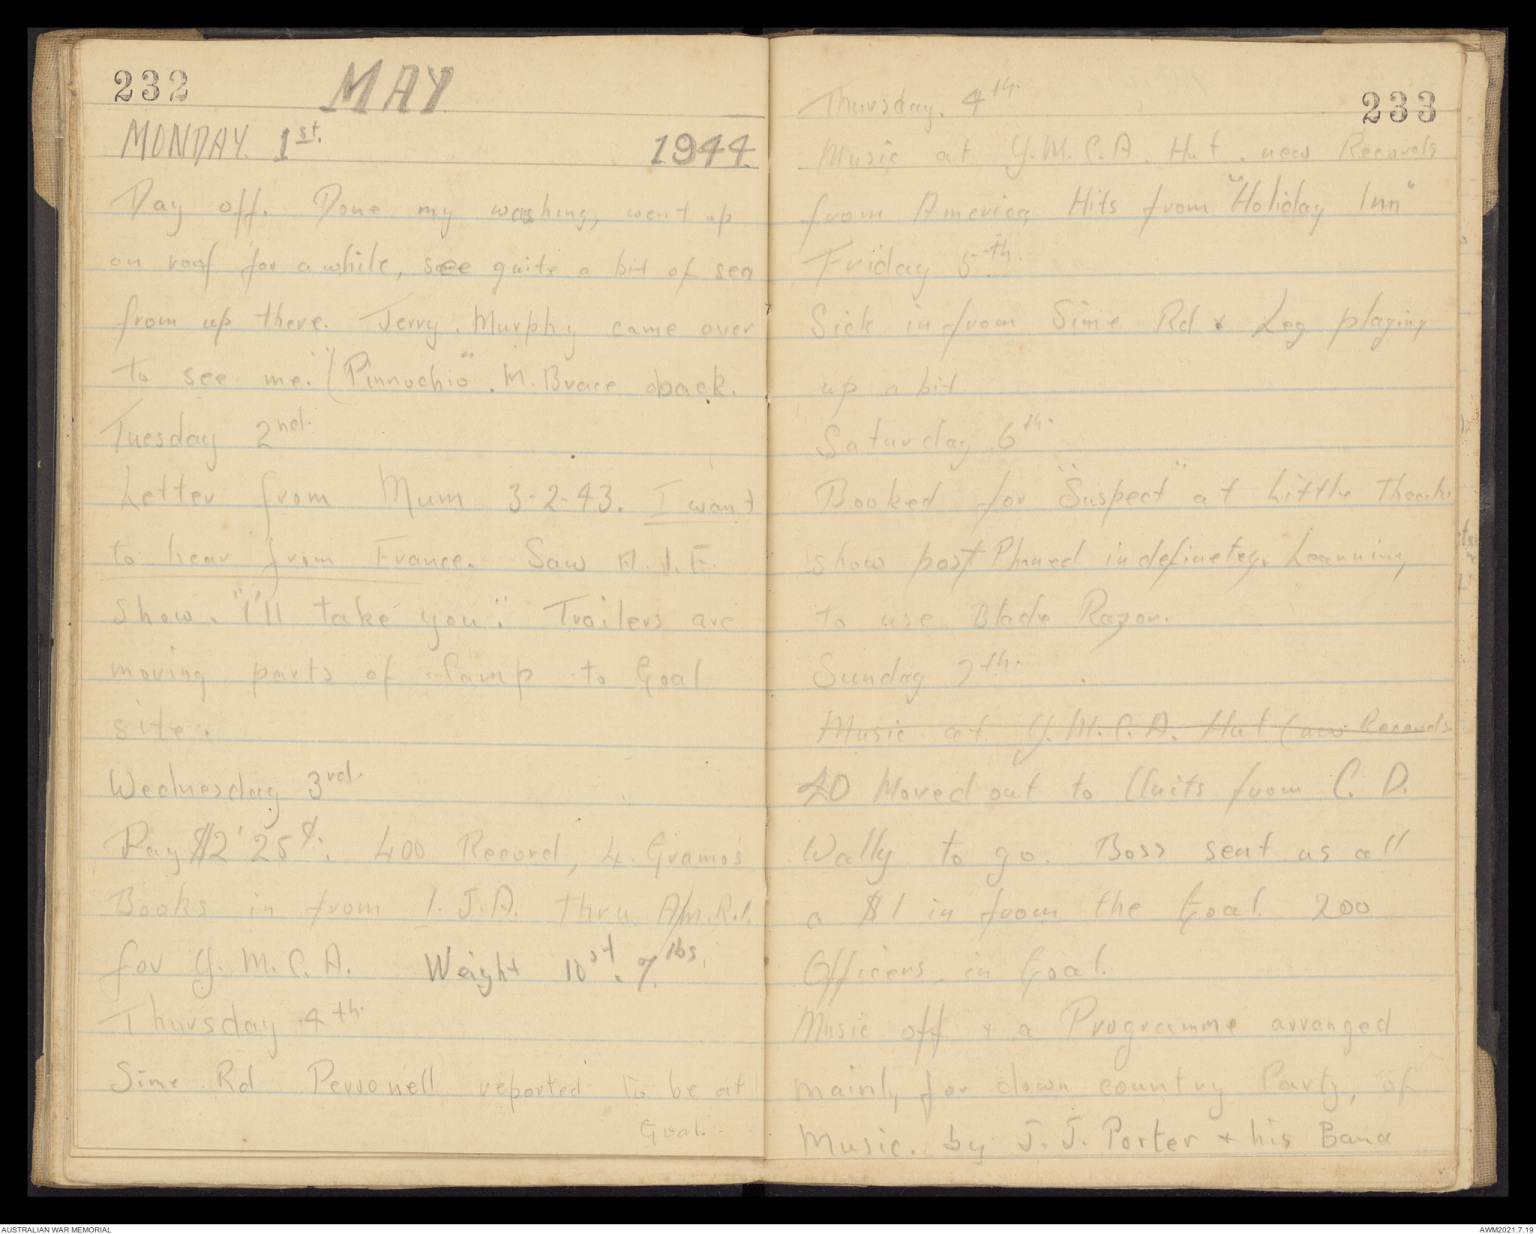 232
MAY
MONDAY. 1st. 1944
Day off. Done my washing, went up
on roof for a while, see quite a bit of sea
from up there. Jerry Murphy came over
to see me. ("Pinnochio". M. Brace back.
Tuesday 2nd.
Letter from Mum 3-2-43. I want
to hear from France. Saw A.I.F.
show. "I'll take you". Trailers are
moving parts of Camp to Goal
site.
Wednesday 3rd.
Pay $2'25¢. 400 Record, 4 Gramos
Books in from I.J.A. thru A/M.R.I.
for Y.M.C.A. Weight 10st. 7lbs.
Thursday 4th.
Sime Rd Personell reported to be at
Goal.
233
Thursday. 4th.
Music at Y.M.C.A. Hut. new Records
from America Hits from "Holiday Inn"
Friday 5th.
Sick in from Sime Rd x Leg playing
up a bit.
Saturday 6th.
Booked for "Suspect" at Little Theatre
show post Phned indefinetey. Learning
to use Blade Razor.
Sunday 7th.
Music at Y.M.C.A. Hut (new Records
40 Moved out to Units from C. D.
Wally to go. Boss sent us all
a $1 in from the Goal. 200
Officers in Goal.
Music off + a Programme arranged
mainly for down country Party, of
Music. by J. J. Porter + his Band
AUSTRALIAN WAR MEMORIAL
AWM2021.7.19